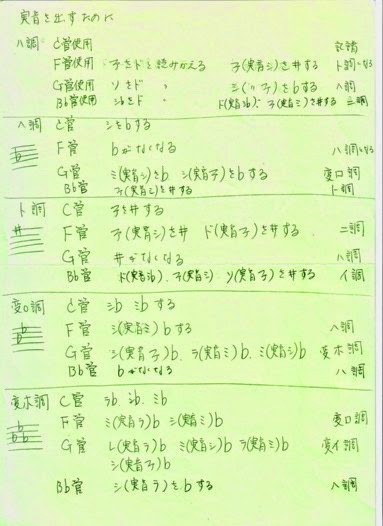 実音を出すために
ハ調 C管使用
F管使用 ファをドと読みかえる ファ(実音シ)を#する ト調になる
G管使用 ソをド 〃 シ(〃ファ)をbする ヘ調
Bb管使用 シbをド 〃 ド(実音シb)、ファ(実音ミ)を#する ニ調
ヘ調 C管 シをbする
F管 bがなくなる ハ調になる
G管 ミ(実音シ)をb シ(実音ファ)をbする 変ロ調
Bb管 ファ(実音ミ)を#する ト調
ト調 C管 ファを#する
F管 ファ(実音シ)を# ド(実音ファ)を#する ニ調
G管 #がなくなる ハ調
Bb管 ド(実音シb)、ファ(実音シ) ソ(実音ファ)を#する イ調
変ロ調 C管 シb ミbする
F管 シ(実音ミ)bする ヘ調
G管 シ(実音ファ)b、ラ(実音ミ)b、ミ(実音シ)b 変ホ調
Bb管 bがなくなる ハ調
変ホ調 C管 ラb、シb、ミb
F管 ミ(実音ラ)b シ(実音ミ)b 変ロ調
G管 レ(実音ラ)b ミ(実音シ)b ラ(実音ミ)b 変イ調
シ(実音ファ)b
Bb管 シ(実音ラ)をbする ヘ調